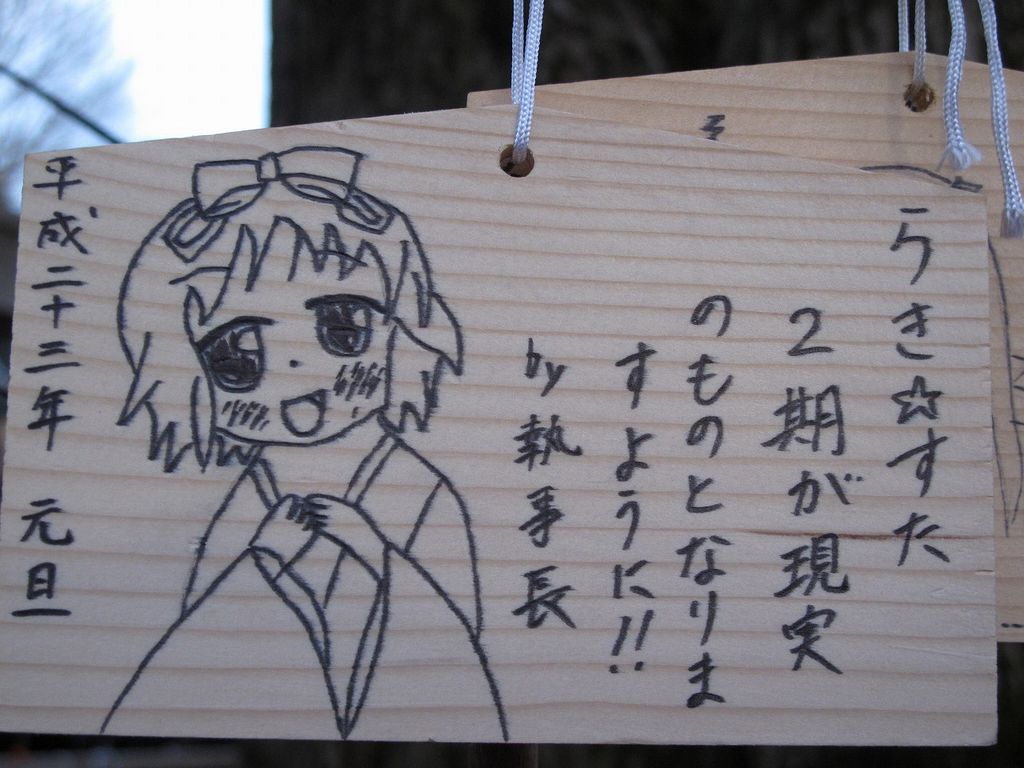 らき☆すた
2期が現実
のものとなりま
すように!!
by執事長
平成二十三年 元旦